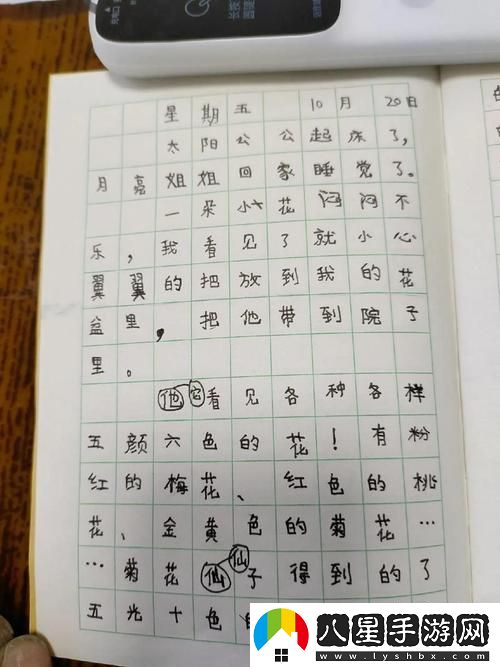 长按
星期五 10月 20日
太阳公公起床了,
月亮姐姐回家睡觉了。
一朵小花闷闷不
乐,我看见了就小心
翼翼的把放到我的花
盆里,把他带到院子
里。
他它看见各种各样
五颜六色的花!有粉
红的梅花、红色的桃
花、金黄色的菊花…
…菊花仙仙子得到的了
五光十色
八星手游网
www.lyshbx.com